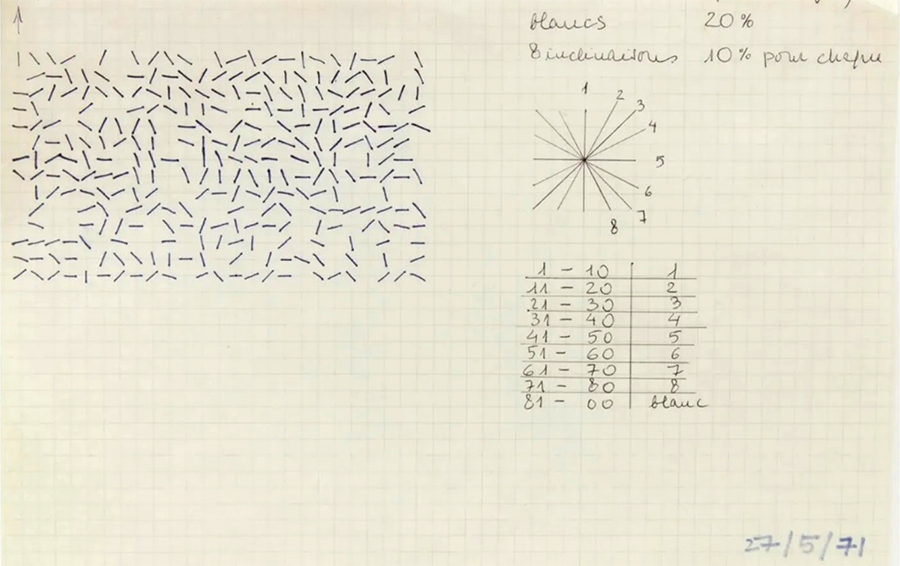 blancs 20%
8 inclinaisons 10% pour chaque
1
2
3
4
5
6
7
8
1 - 10 1
11 - 20 2
21 - 30 3
31 - 40 4
41 - 50 5
51 - 60 6
61 - 70 7
71 - 80 8
81 - 00 blanc
27/5/71